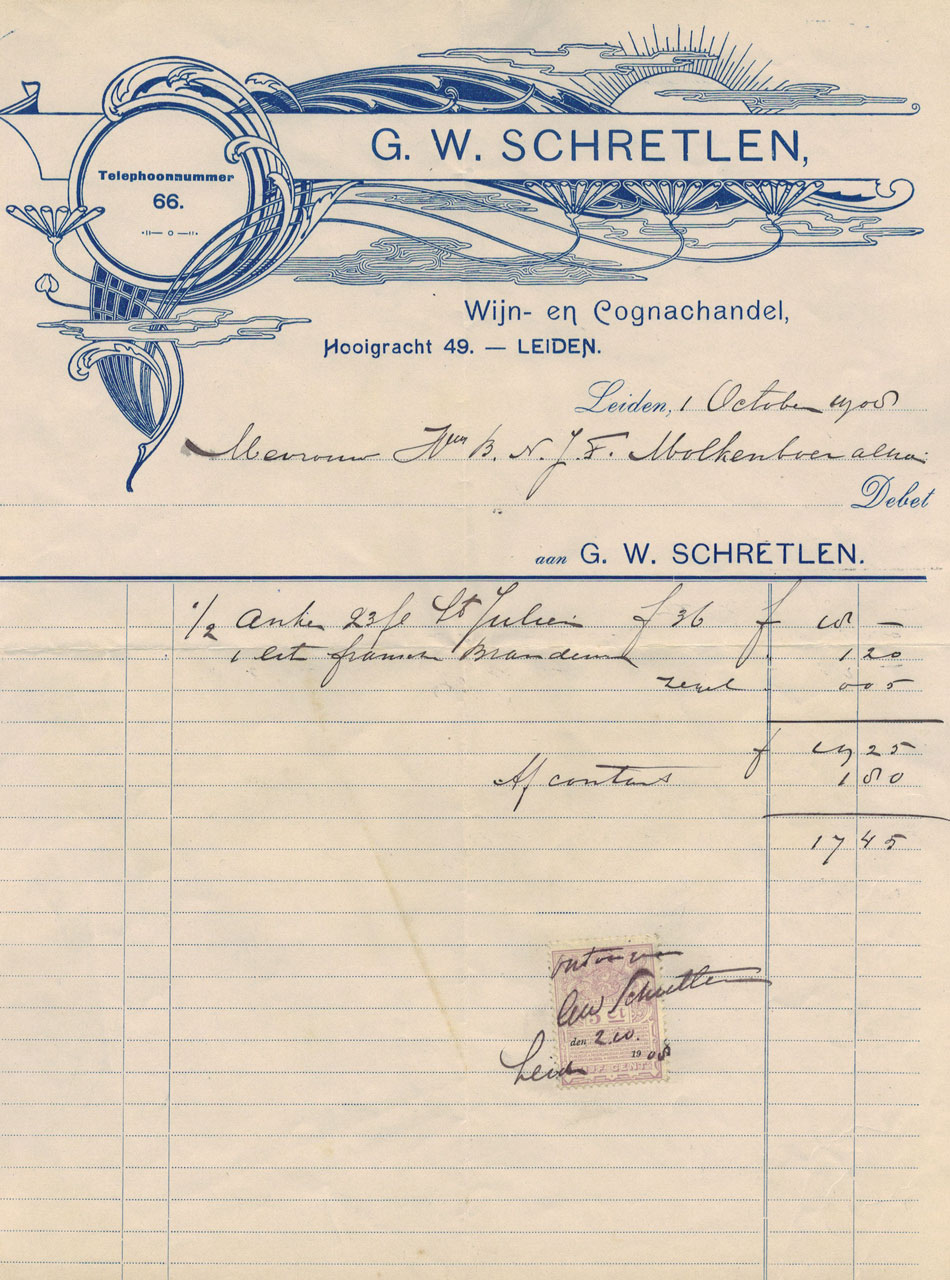 G. W. SCHRETLEN,
Telephoonnummer
66.
Wijn- en Cognachandel,
Hooigracht 49. — LEIDEN.
Leiden, 1 October 1908
Mevrouw B. N. J. F. Molkenboer alhier
Debet
aan G. W. SCHRETLEN.
1/2 Anker 23 fl St Julien f 36 f 18 –
1 lit fransch Brandewijn 1 20
zegel 0 05
f 19 25
Af contant 1 80
17 45
ontvangen
GW Schretlen
5 CT
den 2.10.
Leiden 1908
VIJF CENT